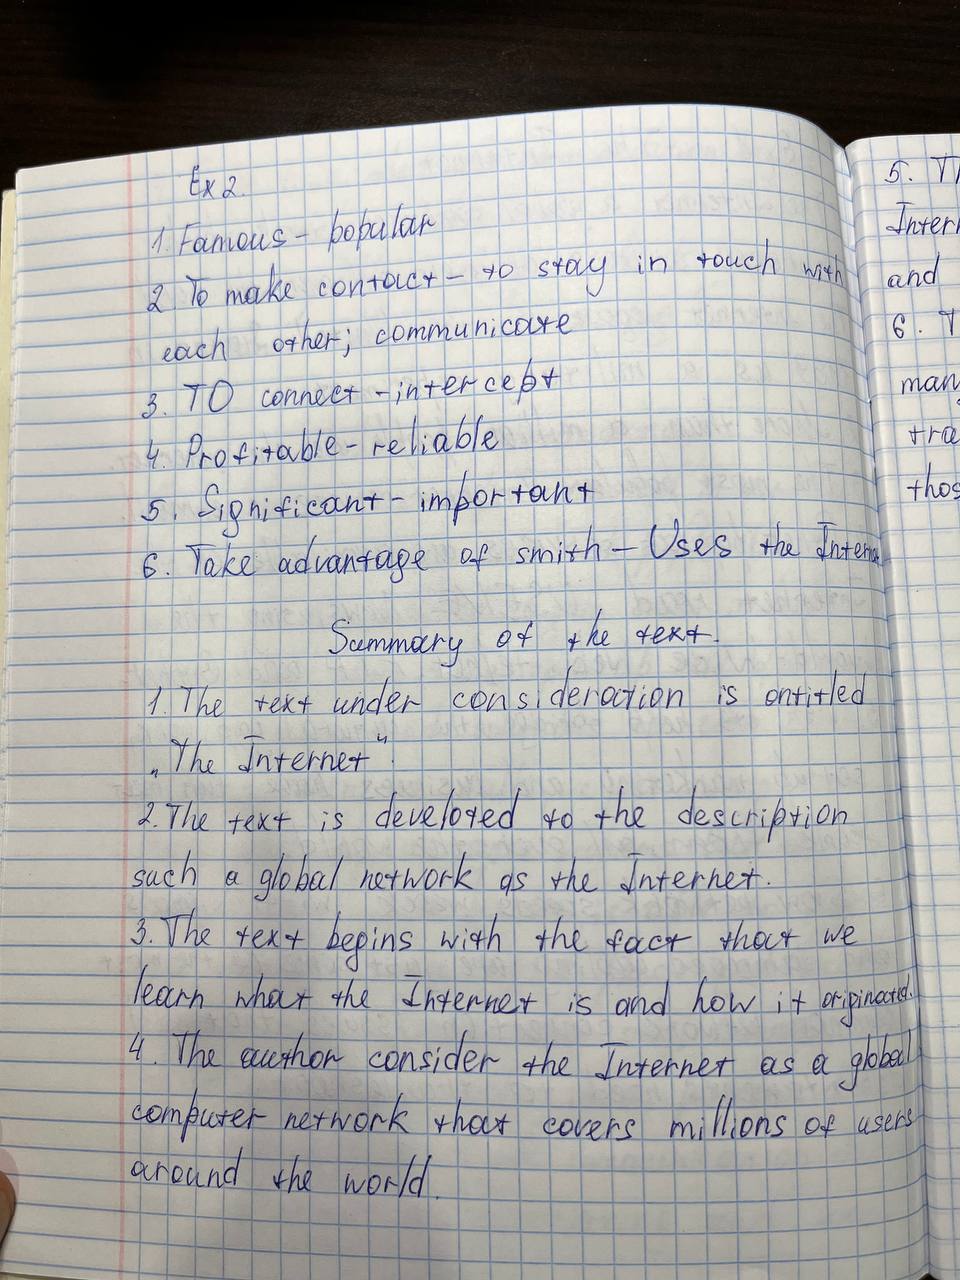 Ex 2.
1. Famous - popular
2 To make contact - to stay in touch with
each other; communicate
3. TO connect - intercept
4. Profitable - reliable
5. Significant - important
6. Take advantage of smith - Uses the Interne
Summary of the text.
1. The text under consideration is entitled
„The Internet“.
2. The text is develoted to the description
such a global network as the Internet.
3. The text begins with the fact that we
learn what the Internet is and how it originated.
4. The author consider the Internet as a global
computer network that covers millions of users
around the world.
5. Th
Intern
and
6. T
man
tra
thos